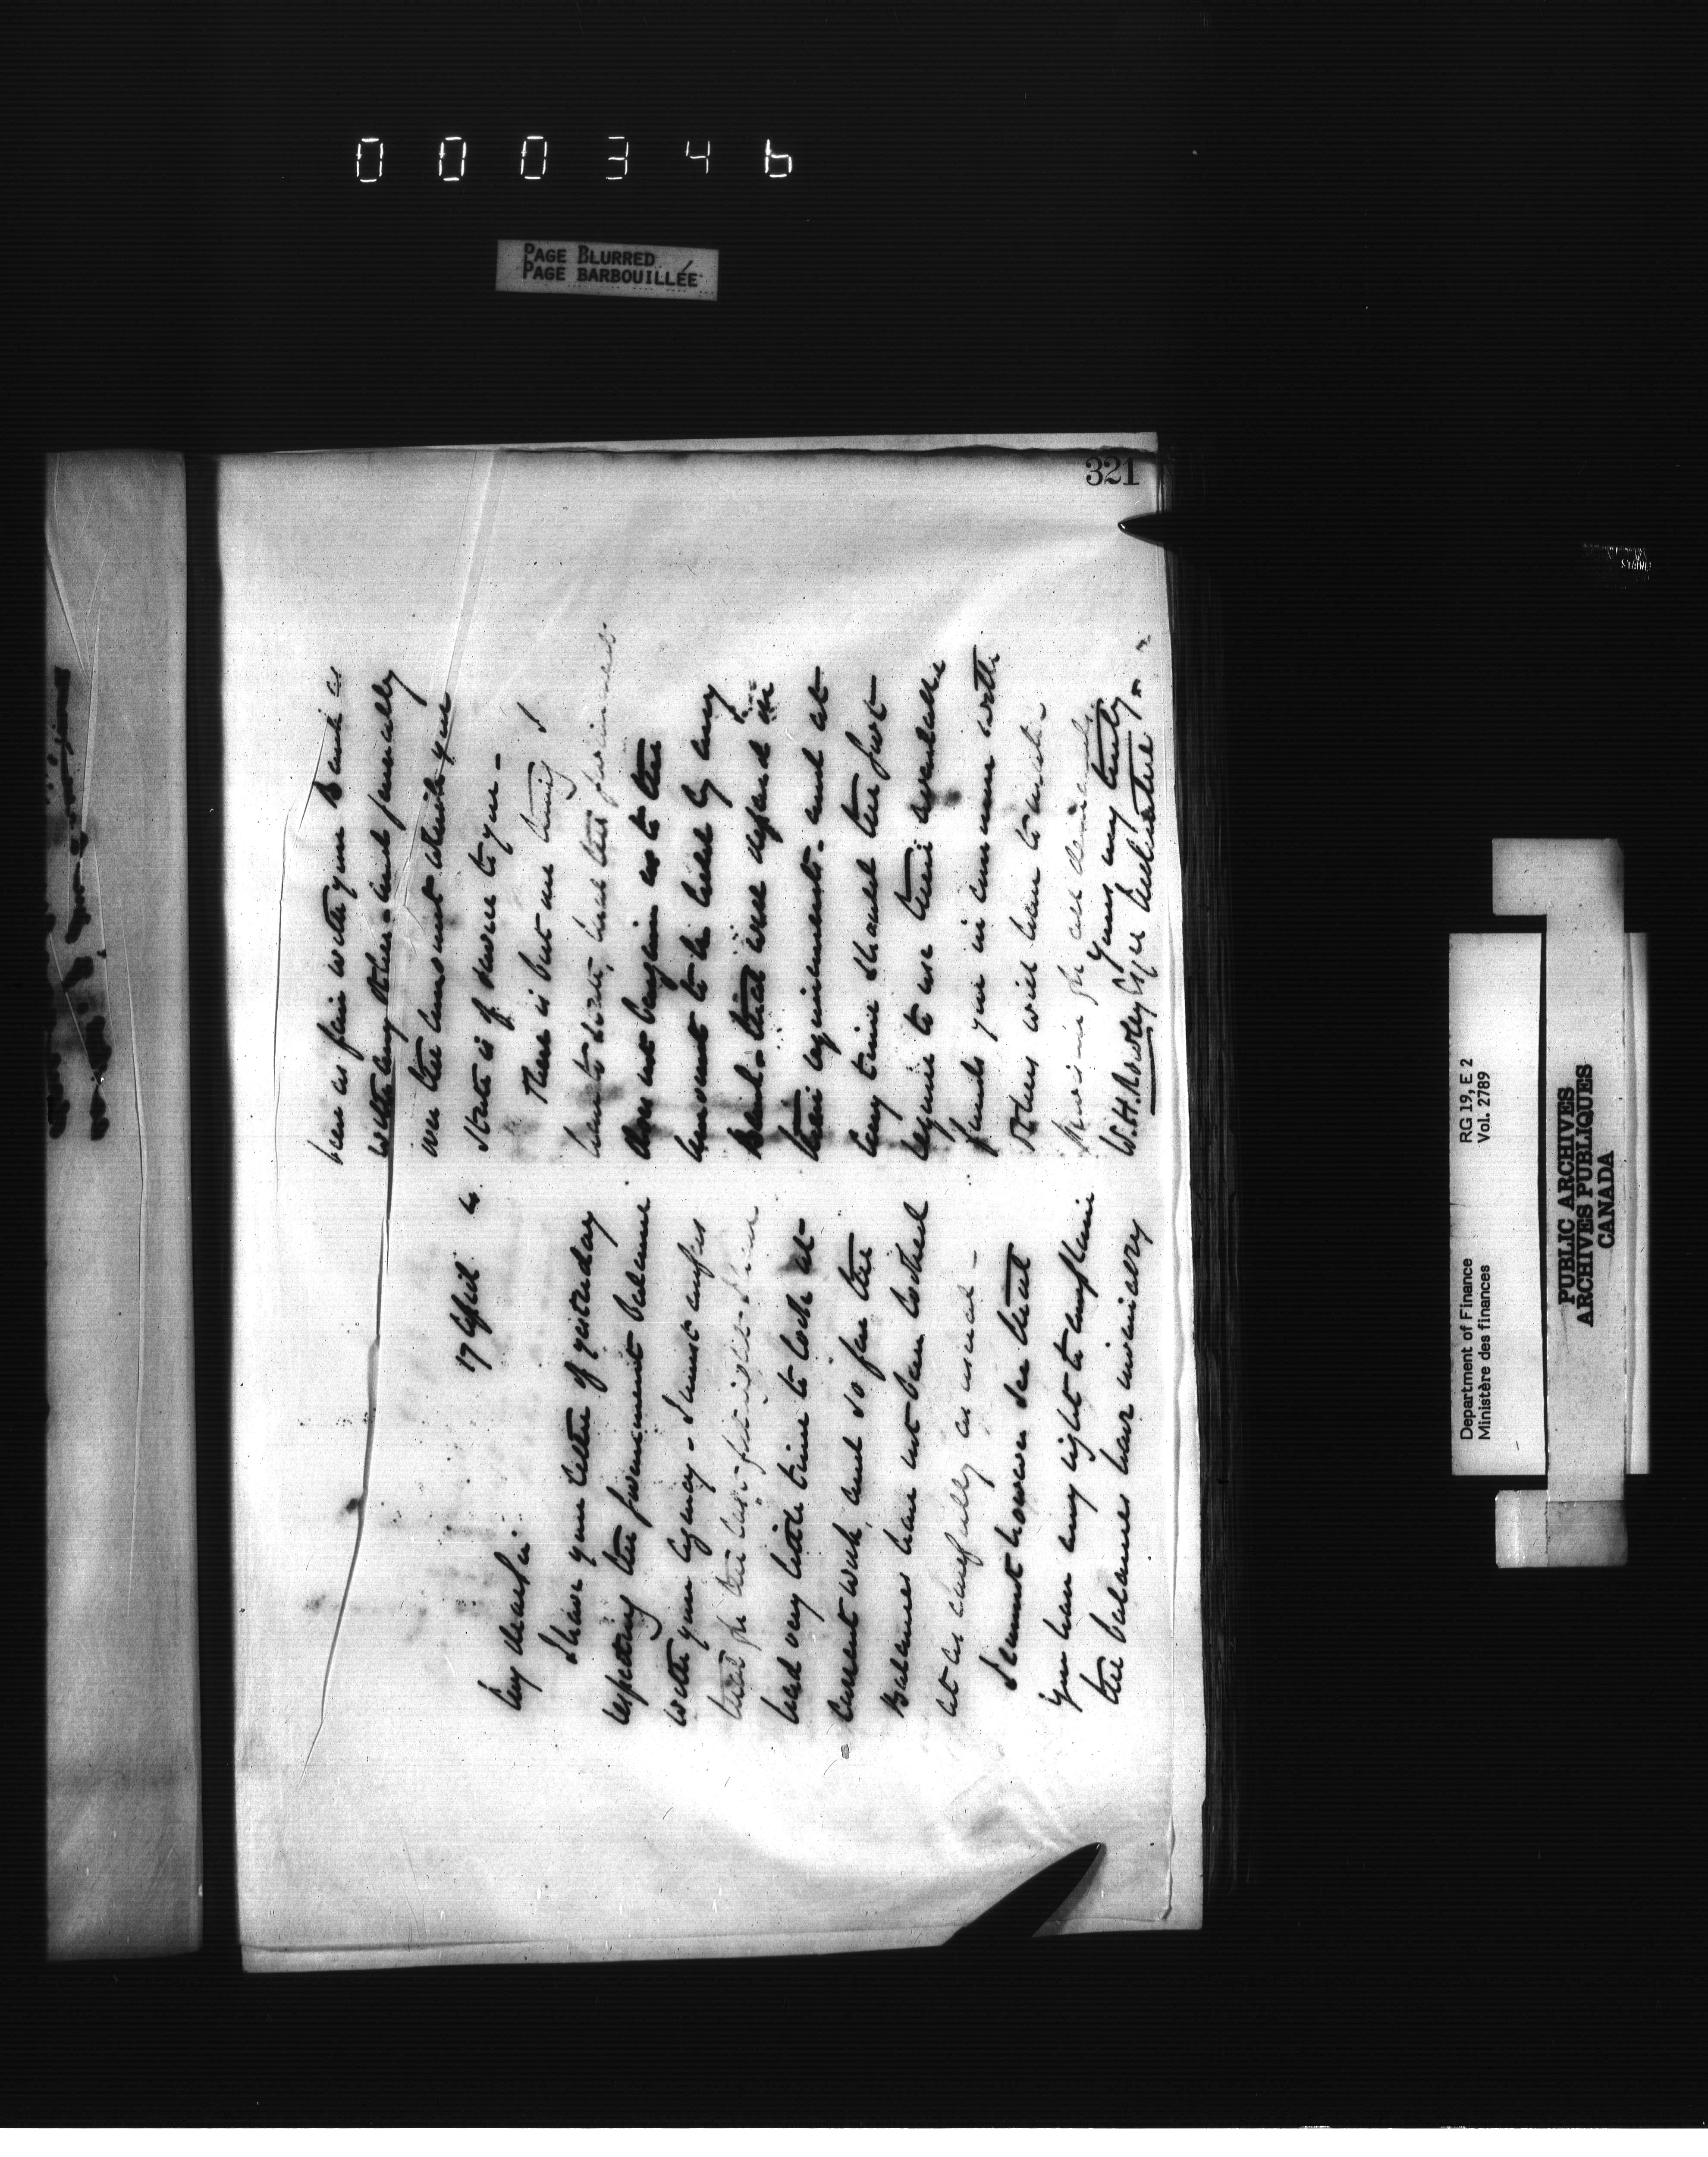 000346
PAGE BLURRED
PAGE BARBOUILLÉE
321
17 April
My dear Sir
I have your letter of yesterday
respecting the Government balance
with your Agency - I must confess
that for the last fortnight I have
had very little time to look at
current work, and so far the
Balances have not been looked
at as carefully as usual -
I cannot however see that
you have any right to complain
the balances have invariably
been as fair with your Bank as
with any other - and generally
over the amount which you
state is of service to you -
There is but one thing I
have to say, that the Government
does not bargain as to the
amount to be held by any
Bank - that will depend on
their requirements - and at
any time should the Govt
require to use their available
funds you in common with
others will have to make
provision for all demands
Yours very truly
W.H. Rowley Esqre
Department of Finance
Ministère des finances
RG 19, E 2
Vol. 2789
PUBLIC ARCHIVES
ARCHIVES PUBLIQUES
CANADA